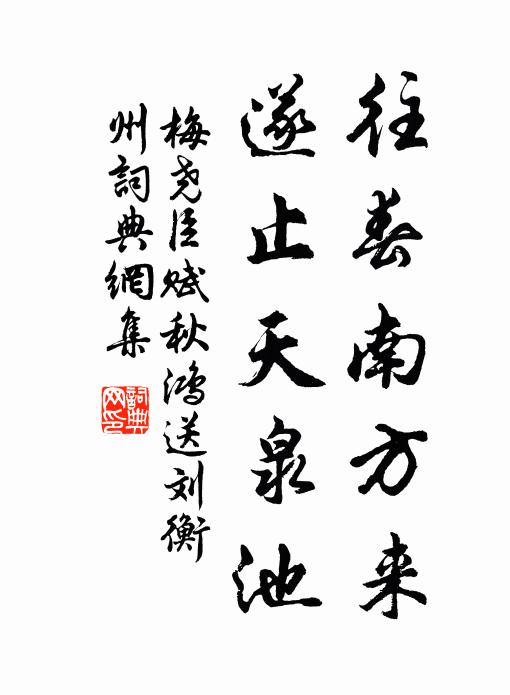 往春南方来
遂止天泉池
梅尧臣赋秋鸿送刘衡
州詞典網集
詞典
网印